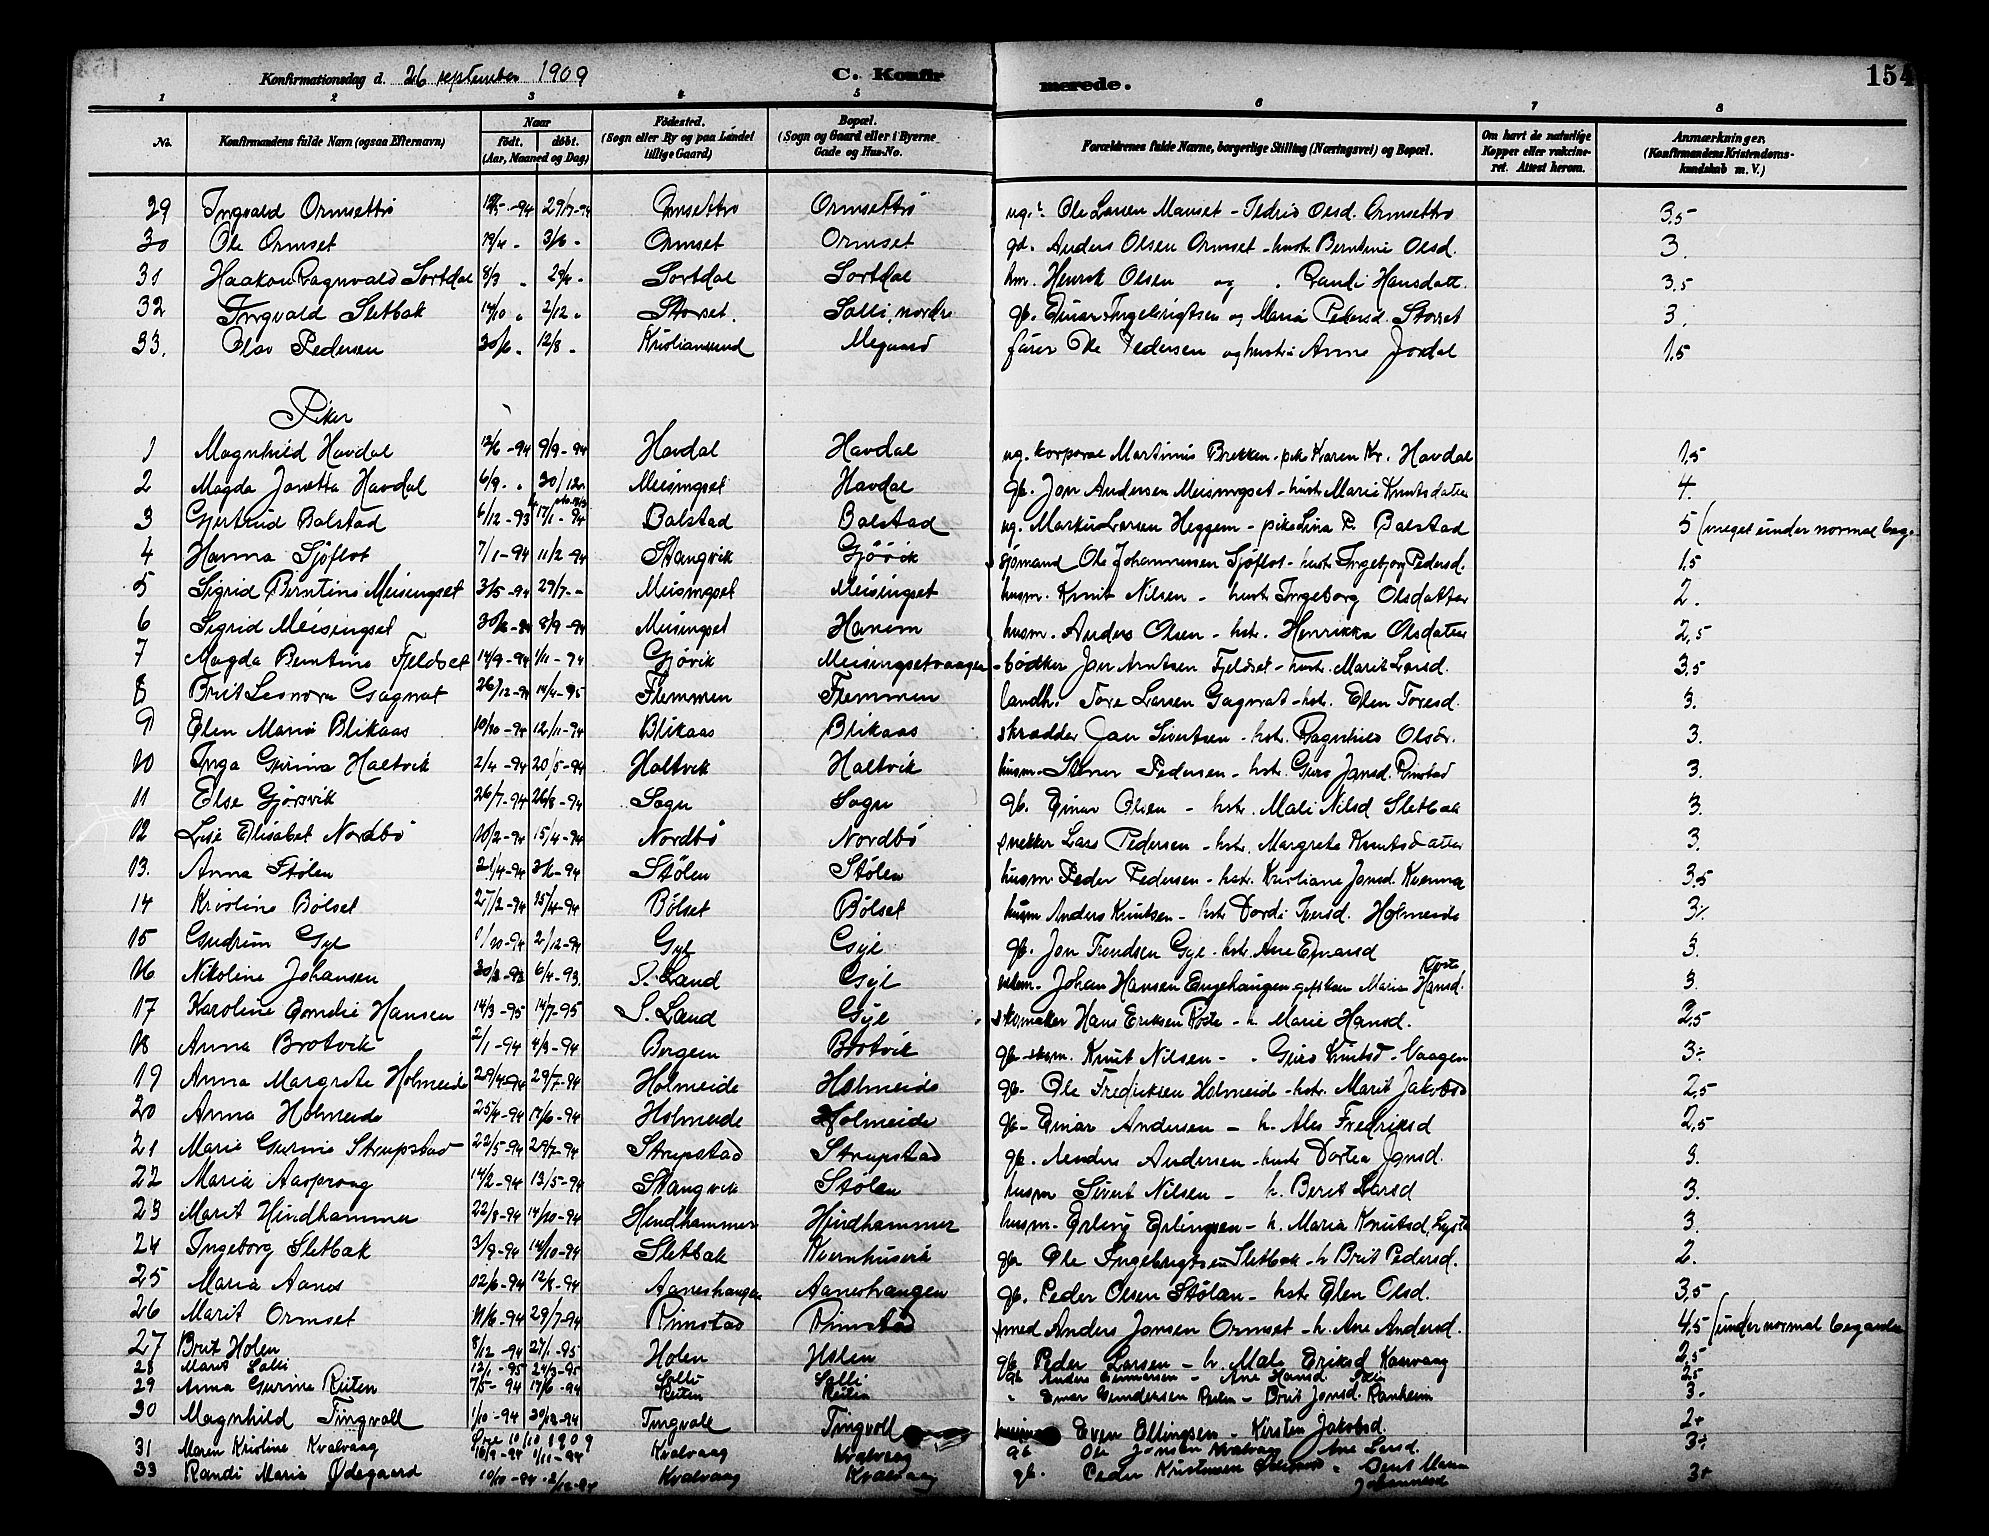 154
Konfirmationsdag d. 26 september 1909 C. Konfirmerede.
1 2 3 4 5 6 7 8
No. Konfirmandens fulde Navn (ogsaa Efternavn) Naar født. døbt. (Aar, Maaned og Dag) Fødested. (Sogn eller By og paa Landet tillige Gaard) Bopæl. (Sogn og Gaard eller i Byerne Gade og Hus-No. Forældrenes fulde Navne, borgerlige Stilling (Næringsvei) og Bopæl. Om havt de naturlige Kopper eller vaccineret. Attest herom. Anmærkninger. (Konfirmandens Kristendomskundskab m. V.)
29 Ingvald Ormsettrø -94 29/7-94 Ormsettrø Ormsettrø ug. Ole Larsen Olsd. Ormsettrø 3.5
30 Ole Ormset 19/4 " 3/6 " Ormset Ormset gb. Anders Olsen Ormset - hustr. Berntine Olsd. 3.
31 Haakon Ragnvald Sortdal 8/3 " 29/4 " Sortdal Sortdal hm. Henrik Olsen og " Randi Hansdatt. 3.5
32 Ingvald Sletbak 14/10 " 2/12 " Storset. Solli, nordre gb. Einar Ingebrigtsen og Maria Pedersd. Storset 3.
33. Olav Pedersen 30/6 " 12/8 " Kristiansund Megaard fører Ole Pedersen og hustru Anne Jordal 1.5
Piker
1 Magnhild Havdal 12/6-94 9/9-94 Havdal Havdal ug. korporal Martinus Brekken - pike Karen Kr. Havdal 1.5
2 Magda Jonetta Havdal 6/9 " 30/12 Meisingset Havdal gb. Jon Andersen Meisingset - hustr. Marie Knutsdatter 4.
3 Gjertrud Balstad 6/12-93 17/1-94 Balstad Balstad ug. Markus Larsen Heggem - pike Lina P. Balstad 5 (meget under normal beg.
4 Hanna Sjøflot 7/1-94 11/2-94 Stangvik Gjøvik sjømand Ole Johannesen Sjøflot - hustr. Ingebjørg Pedersd. 1.5
5 Sigrid Berntine Meisingset 3/5-94 29/7-" Meisingset Meisingset husm. Knut Nilsen - hustr Ingeborg Olsdatter 2.
6 Sigrid Meisingset 30/6-94 8/9-94 Meisingset Hanem husm. Anders Olsen - hstr. Henrikka Olsdatter 2.5
7 Magda Berntine Fjeldset 14/9-94 1/11-94 Gjøvik Meisingsetvaagen bødker Jon Arntsen Fjeldset - hustr. Marit Larsd. 3.5
8 Brit Leonora Gagnat 26/12-94 14/4-95 Flemmen Flemmen landh. Tore Larsen Gagnat - hstr. Elen Toresd. 3.
9 Elen Marie Blikaas 10/10-94 12/11-94 Blikaas Blikaas skrædder Jon Sivertsen - hstr. Ragnhild Olsdr. 3.
10 Inga Gurina Haltvik 2/4-94 20/5-94 Haltvik Haltvik husm. Stener Pedersen - hstr. Guro Jonsd. Rimstad 3.
11 Else Gjørsvik 26/7-94 26/8-94 Sogn Sogn gb. Einar Olsen - hstr. Mali Nilsd Sletbak 3.
12 Lise Elisabet Nordbø 10/2-94 15/4-94 Nordbø Nordbø snekker Lars Pedersen - hstr. Margrete Knutsdatter 3.
13. Anna Stølen 21/4-94 3/6-94 Stølen Stølen husm Peder Pedersen - hstr. Kristiane Jonsd. Kvenna 3.5
14 Kristine Bølset 27/2-94 15/4-94 Bølset Bølset husm Anders Knutsen - hstr Dordi Iversd. Holmeide 3÷
15 Gudrun Gyl 1/10-94 2/12-94 Gyl Gyl gb. Jon Trondsen Gyl - hstr. Ane Einarsd 3.
16 Nikoline Johansen 6/4-93. S. Land Gyl Johan Hansen Engehaugen Maria Hansd. Røste 3.
17 Karoline Emelie Hansen 14/3-95 14/7-95 S. Land Gyl skomaker Hans Eriksen Røste - h. Marie Hansd. 2.5
18 Anna Brotvik 2/1-94 4/3-94 Bergen Brotvik gb. Knut Nilsen - " Guro Knutsd - Vaagen 3÷
19 Anna Margrete Holmeide 29/4-94 29/7-94 Holmeide Holmeide gb. Ole Fredriksen Holmeide - hstr. Marit Jakobsd 2.5
20 Anna Holmeide 25/4-94 17/6-94 Holmeide Holmeide gb - Einar Andersen - h. Ales Fredriksd 2.5
21 Marie Gurine Strupstad 22/5-94 29/7-94 Strupstad Strupstad gb. Anders Andersen - hustr Dortea Jonsd. 3.
22 Maria Aasprong 14/2-94 13/5-94 Stangvik Stølen husm Sivert Nilsen - h. Berit Larsd 3.
23 Marit Hindhammer 22/8-94 14/10-94 Hindhammer Hindhammer husm. Erling Erlingsen - h. Maria Knutsd, 3.
24 Ingeborg Sletbak 3/9-94 14/10-94 Sletbak Kvernhuseik gb Ole Ingebrigtsen Sletbak - h Brit Pedersd. 2.
25 Maria Aanes 12/6-94 12/8-94 Aaneshaugen Aaneshaugen gb. Peder Olsen Stølan - hstr Elen Olsd. 3.5
26 Marit Ormset 11/6-94 29/7-94 Rimstad Rimstad smed Anders Jonsen Ormset - h. Ane Andersd. 4.5 (under normal begavelse
27 Brit Holen 8/12-94 27/1-95 Holen Holen gb Peder Larsen - h. Mali Eriksd Kasvaag 2.5
28 Marit Solli 12/1-95 24/3-95 Solli Solli gb Anders - Ane Hansd 2.5
29 Anna Gurine Reiten 7/5-94 17/6-94 Reiten Reiten " Einar Gundersen Reiten - Brit Jonsd. Ranheim 3-
30 Magnhild Tingvoll 1/10-94 30/12-94 Tingvoll Tingvoll Even Ellingsen - Kirsten Jakobsd. 2+
10/10 1909
31 Maren Kristine Kvalvaag 16/9-94 1/11-94 Kvalvaag Kvalvaag gb Ole Jonsen Kvalvaag Ane Larsd. 3÷
33 Randi Maria Ødegaard 10/10-94 2/12-94 Kvalvaag Kvalvaag gb. Peder Kristensen " Berit Maria Johannesd 3+